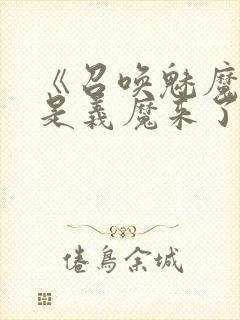 《召唤魅魔
是义魔来了
倦鸟余城